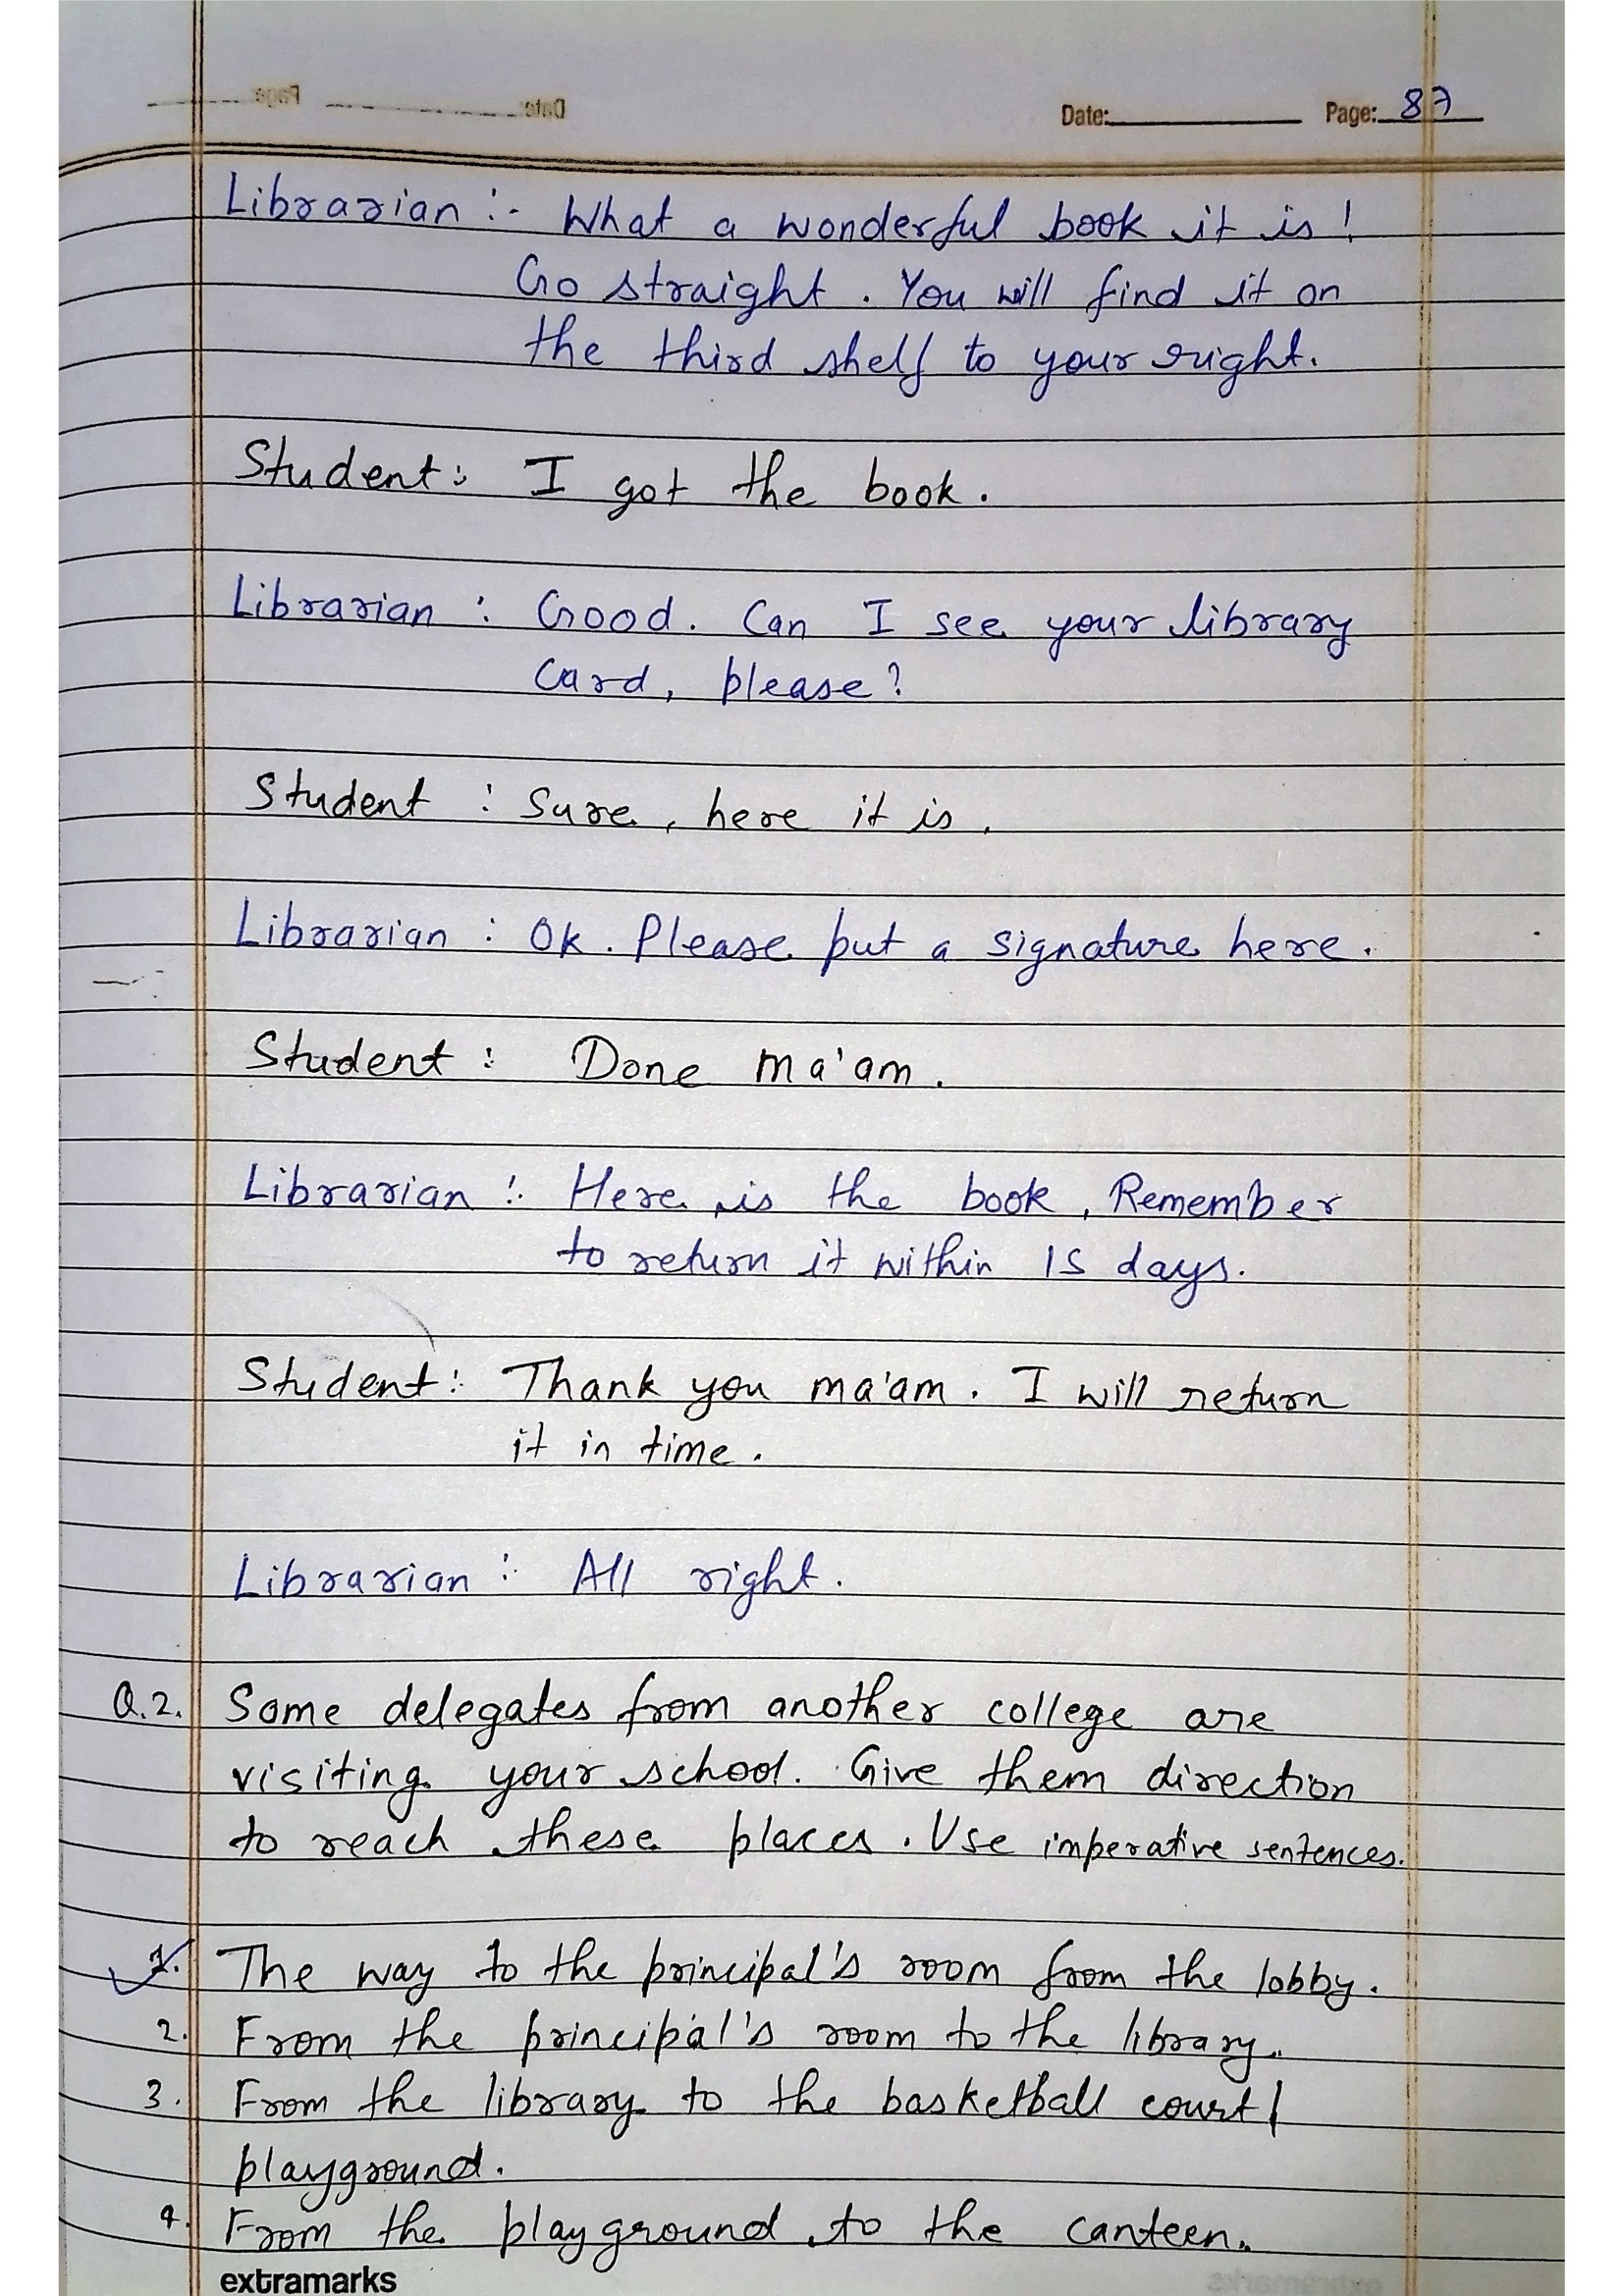 Date: Page: 87
Librarian :- What a wonderful book it is !
Go straight . You will find it on
the third shelf to your right.
Student : I got the book .
Librarian : Good . Can I see your library
card, please ?
Student : Sure , here it is .
Librarian : Ok . Please put a signature here .
Student : Done ma'am .
Librarian : Here is the book , Remember
to return it within 15 days .
Student : Thank you ma'am . I will return
it in time .
Librarian : All right .
Q.2. Some delegates from another college are
visiting your school . Give them direction
to reach these places . Use imperative sentences.
1. The way to the principal's room from the lobby .
2. From the principal's room to the library .
3. From the library to the basketball court /
playground .
4. From the playground to the canteen .
extramarks